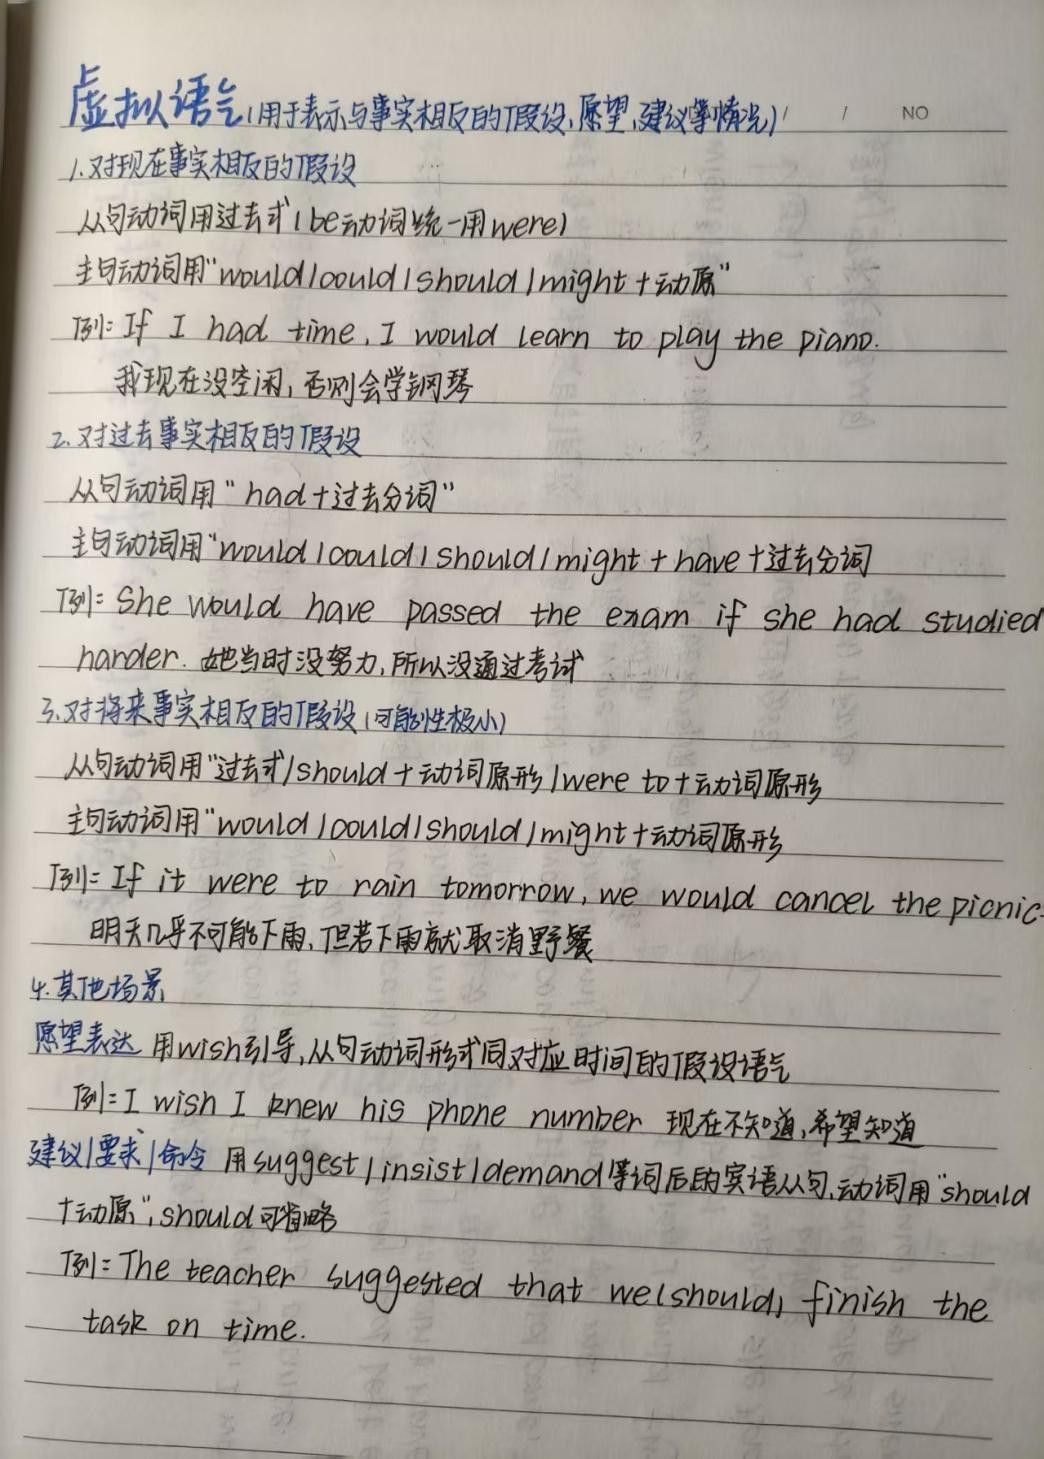 虚拟语气(用于表示与事实相反的假设,愿望,建议等情况) / / NO
1.对现在事实相反的假设
从句动词用过去式(be动词统一用were)
主句动词用"would/could/should/might+动原"
例:If I had time, I would learn to play the piano.
我现在没空闲,否则会学钢琴
2.对过去事实相反的假设
从句动词用"had+过去分词"
主句动词用"would/could/should/might+have+过去分词
例:She would have passed the exam if she had studied
harder. 她当时没努力,所以没通过考试
3.对将来事实相反的假设(可能性极小)
从句动词用"过去式/should+动词原形/were to+动词原形
主句动词用"would/could/should/might+动词原形
例:If it were to rain tomorrow, we would cancel the picnic.
明天几乎不可能下雨,但若下雨就取消野餐
4.其他场景
愿望表达 用wish引导,从句动词形式同对应时间的假设语气
例:I wish I knew his phone number 现在不知道,希望知道
建议/要求/命令 用suggest/insist/demand等词后的宾语从句,动词用"should
+动原",should可省略
例:The teacher suggested that we(should) finish the
task on time.